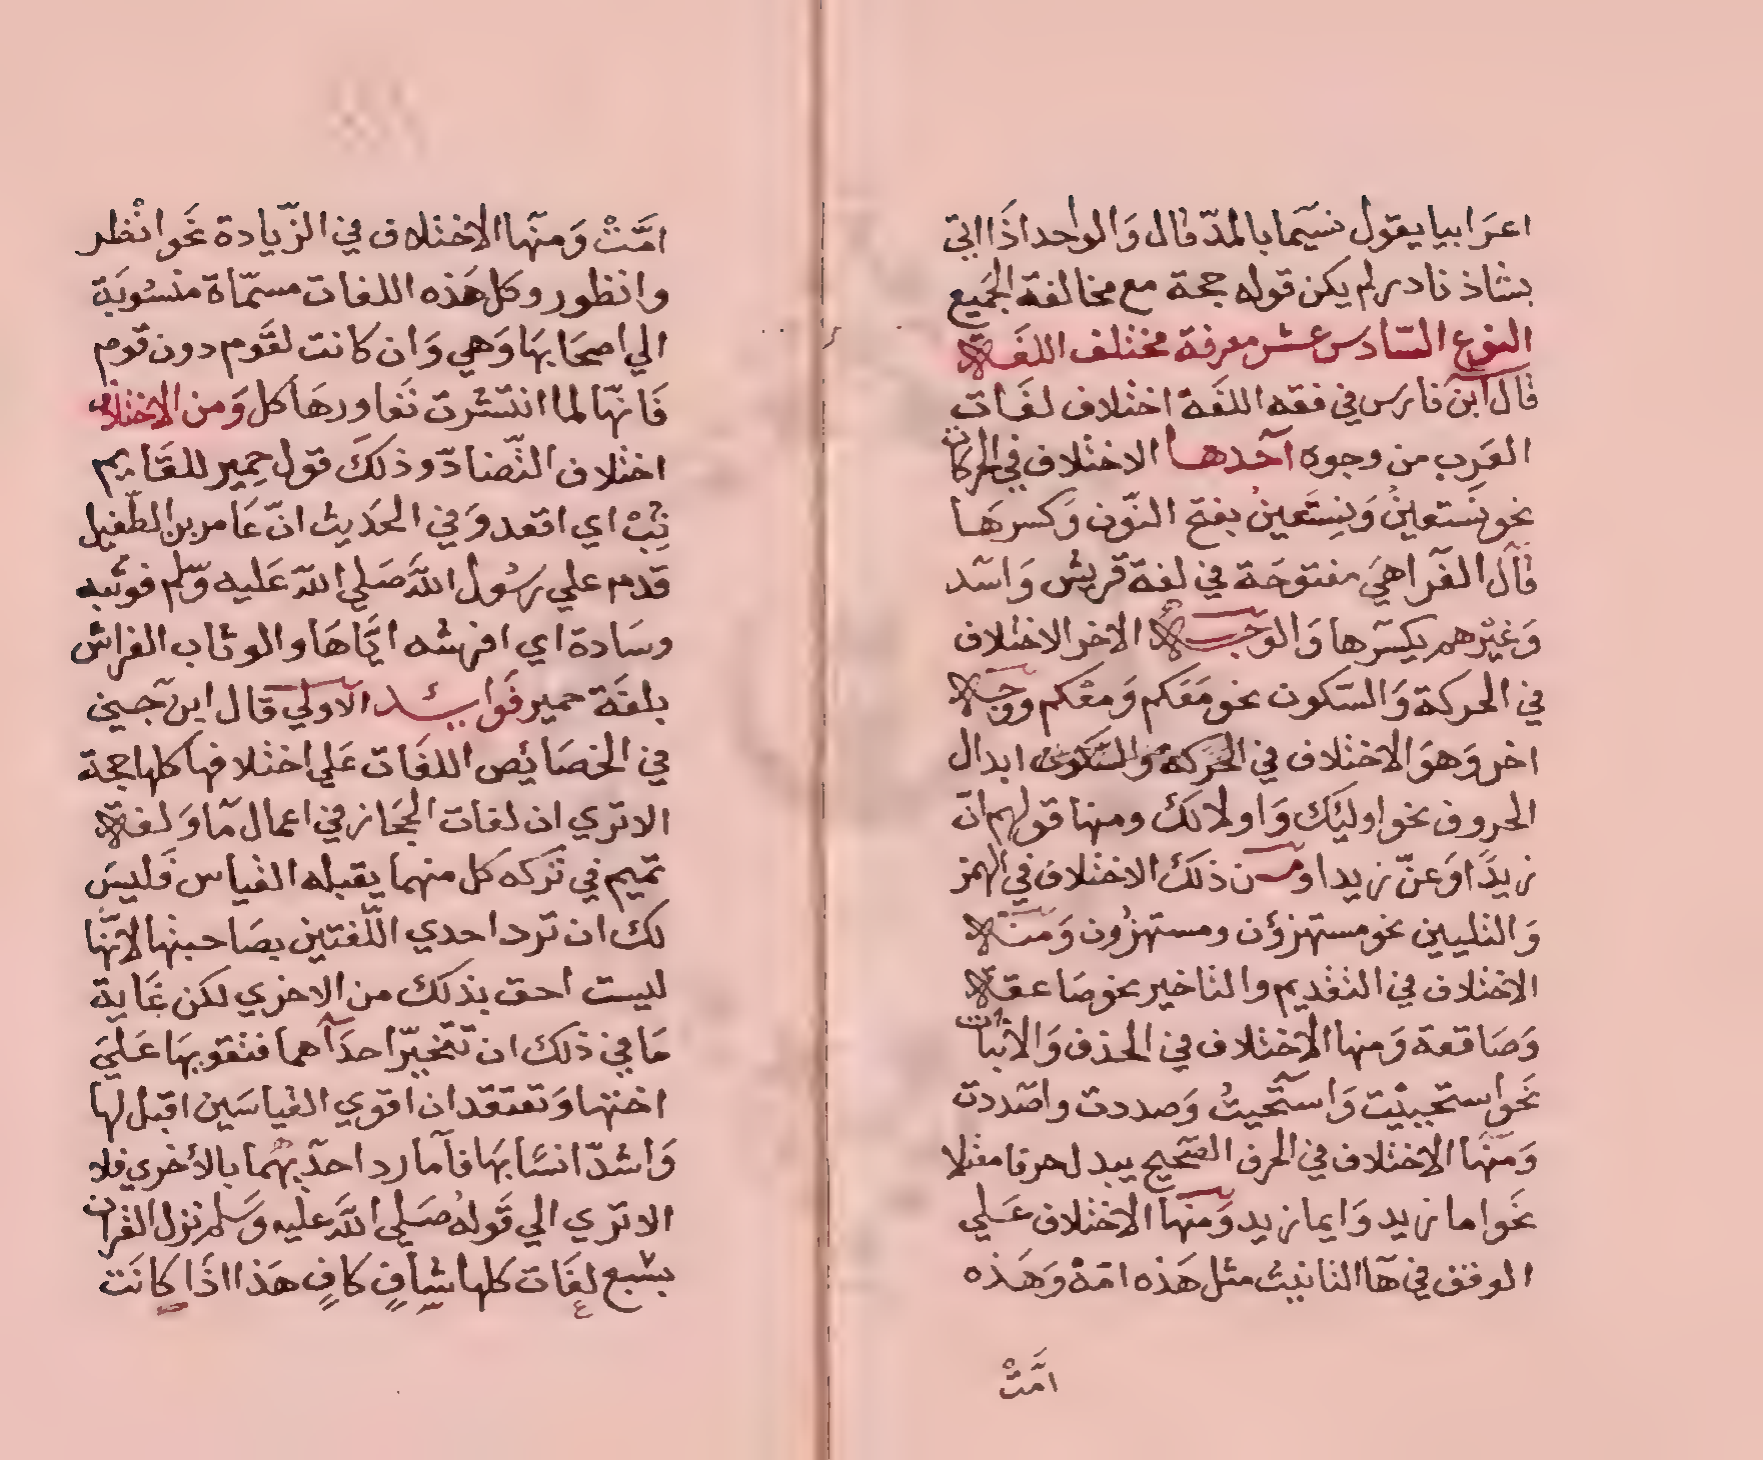 اعرَابيا يقول نسَيما بالمدّ قال وَالواحد اذَا اتي
بشاذ نادر لم يكن قوله حجة مع مخالفة الجَميع
النوع السّادس عشر معرفة مختلف اللغَة
قال ابن فَارس في فقه اللغَة اختلاف لغَات
العَرب من وجوه آحدها الاختلاف في الحركات
نحو نَستعينُ وَنِستَعينُ بفتح النّون وَكسرهَا
قآل الفرّا هيَ مفتوحَة في لغة قريش وَاسَد
وَغيْرهم يكسّرها وَالوجه الاخر الاختلاف
في الحركة وَالسّكون نحو مَعَكم وَمعْكم ووجه
اخر وَهوَ الاختلاف في الحَركة والسّكون ابدال
الحروف نحو اوليَك وَاولالك ومنها قولهم انّ
زيدًا وَعنّ زيدا ومن ذلكَ الاختلاف في الهمز
وَالتليين نحو مستهزؤن ومستهزُون وَمنه
الاختلاف في التقديم والتاخير نحو صَاعقة
وَصَاقعة وَمنها الاختلاف في الحذف وَالاثبات
نَحو استحييْت وَاستَحيتُ وَصددت واصّددت
وَمنهَا الاختلاف في الحرف الصّحيح يبدل حرفا معتلا
نحَو اما زيد وَايما زيد وَمنها الاختلاف عَلي
الوقف في هَا التانيث مثل هَذه امَهْ وَهَذه
امَّتْ
امَّتْ وَمنهَا الاختلاف في الزّيادة نَحو انْظر
وانظور وكل هَذه اللغات مسمّاة منسُوبَة
الي اصحَابهَا وَهي وَان كانت لقَوم دون قوم
فَانهّا لما انتشرت تَعَاورهَا كل وَمن الاختلاف
اختلاف التّضادّ وذلكَ قول حِمِير للقَايم
ثِبْ اي اقعد وَفي الحَديث انّ عَامر بن الطّفيل
قدم علي رسُول اللهَّ صَلي اللهّ عَليه وَسّلم فوثّبه
وسَادة اي افرشه ايّاهَا والوثاب الفراش
بلغَة حمير فَوايد الاولَي قال ابن جني
في الخصَايَص اللغَات عَلي اختلافها كلها حجة
الا تري ان لغات الحجَاز في اعمال مَا وَلغة
تميم في تَركه كل منهما يقبله القياس فَليسَ
لك ان تَرد احدي اللّغتين بصَاحبتها لانّهَا
ليست احق بذلك من الاخري لكن غَاية
مَا في ذلك ان تتخيّر احدَاهما فتقويهَا عَليَ
اختها وَتعتقد ان اقوي القياسَين اقبل لها
وَاشدّ انسًا بهَا فآما رد احدّيهُما بالأخري فلا
الا تري الي قَوله صَلي اللهَّ عليه وَسَلم نزل القران
بسْبع لغَات كلها شافٍ كافٍ هَذا اذَا كانَت